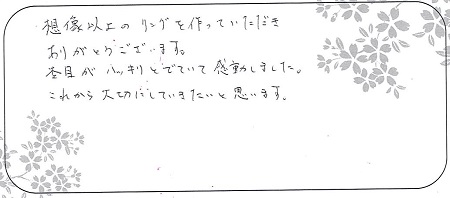 想像以上のリングを作っていただき
ありがとうございます。
杢目がハッキリとでていて感動しました。
これから大切にしていきたいと思います。